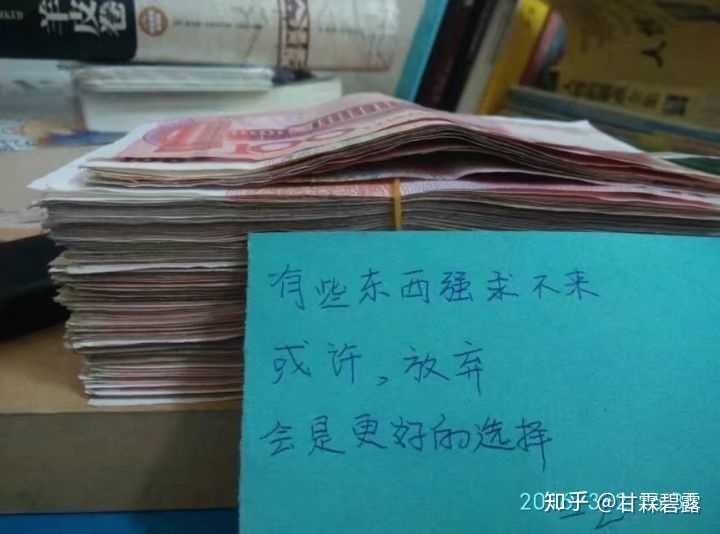 有些东西强求不来
或许，放弃
会是更好的选择
知乎 @甘霖碧露